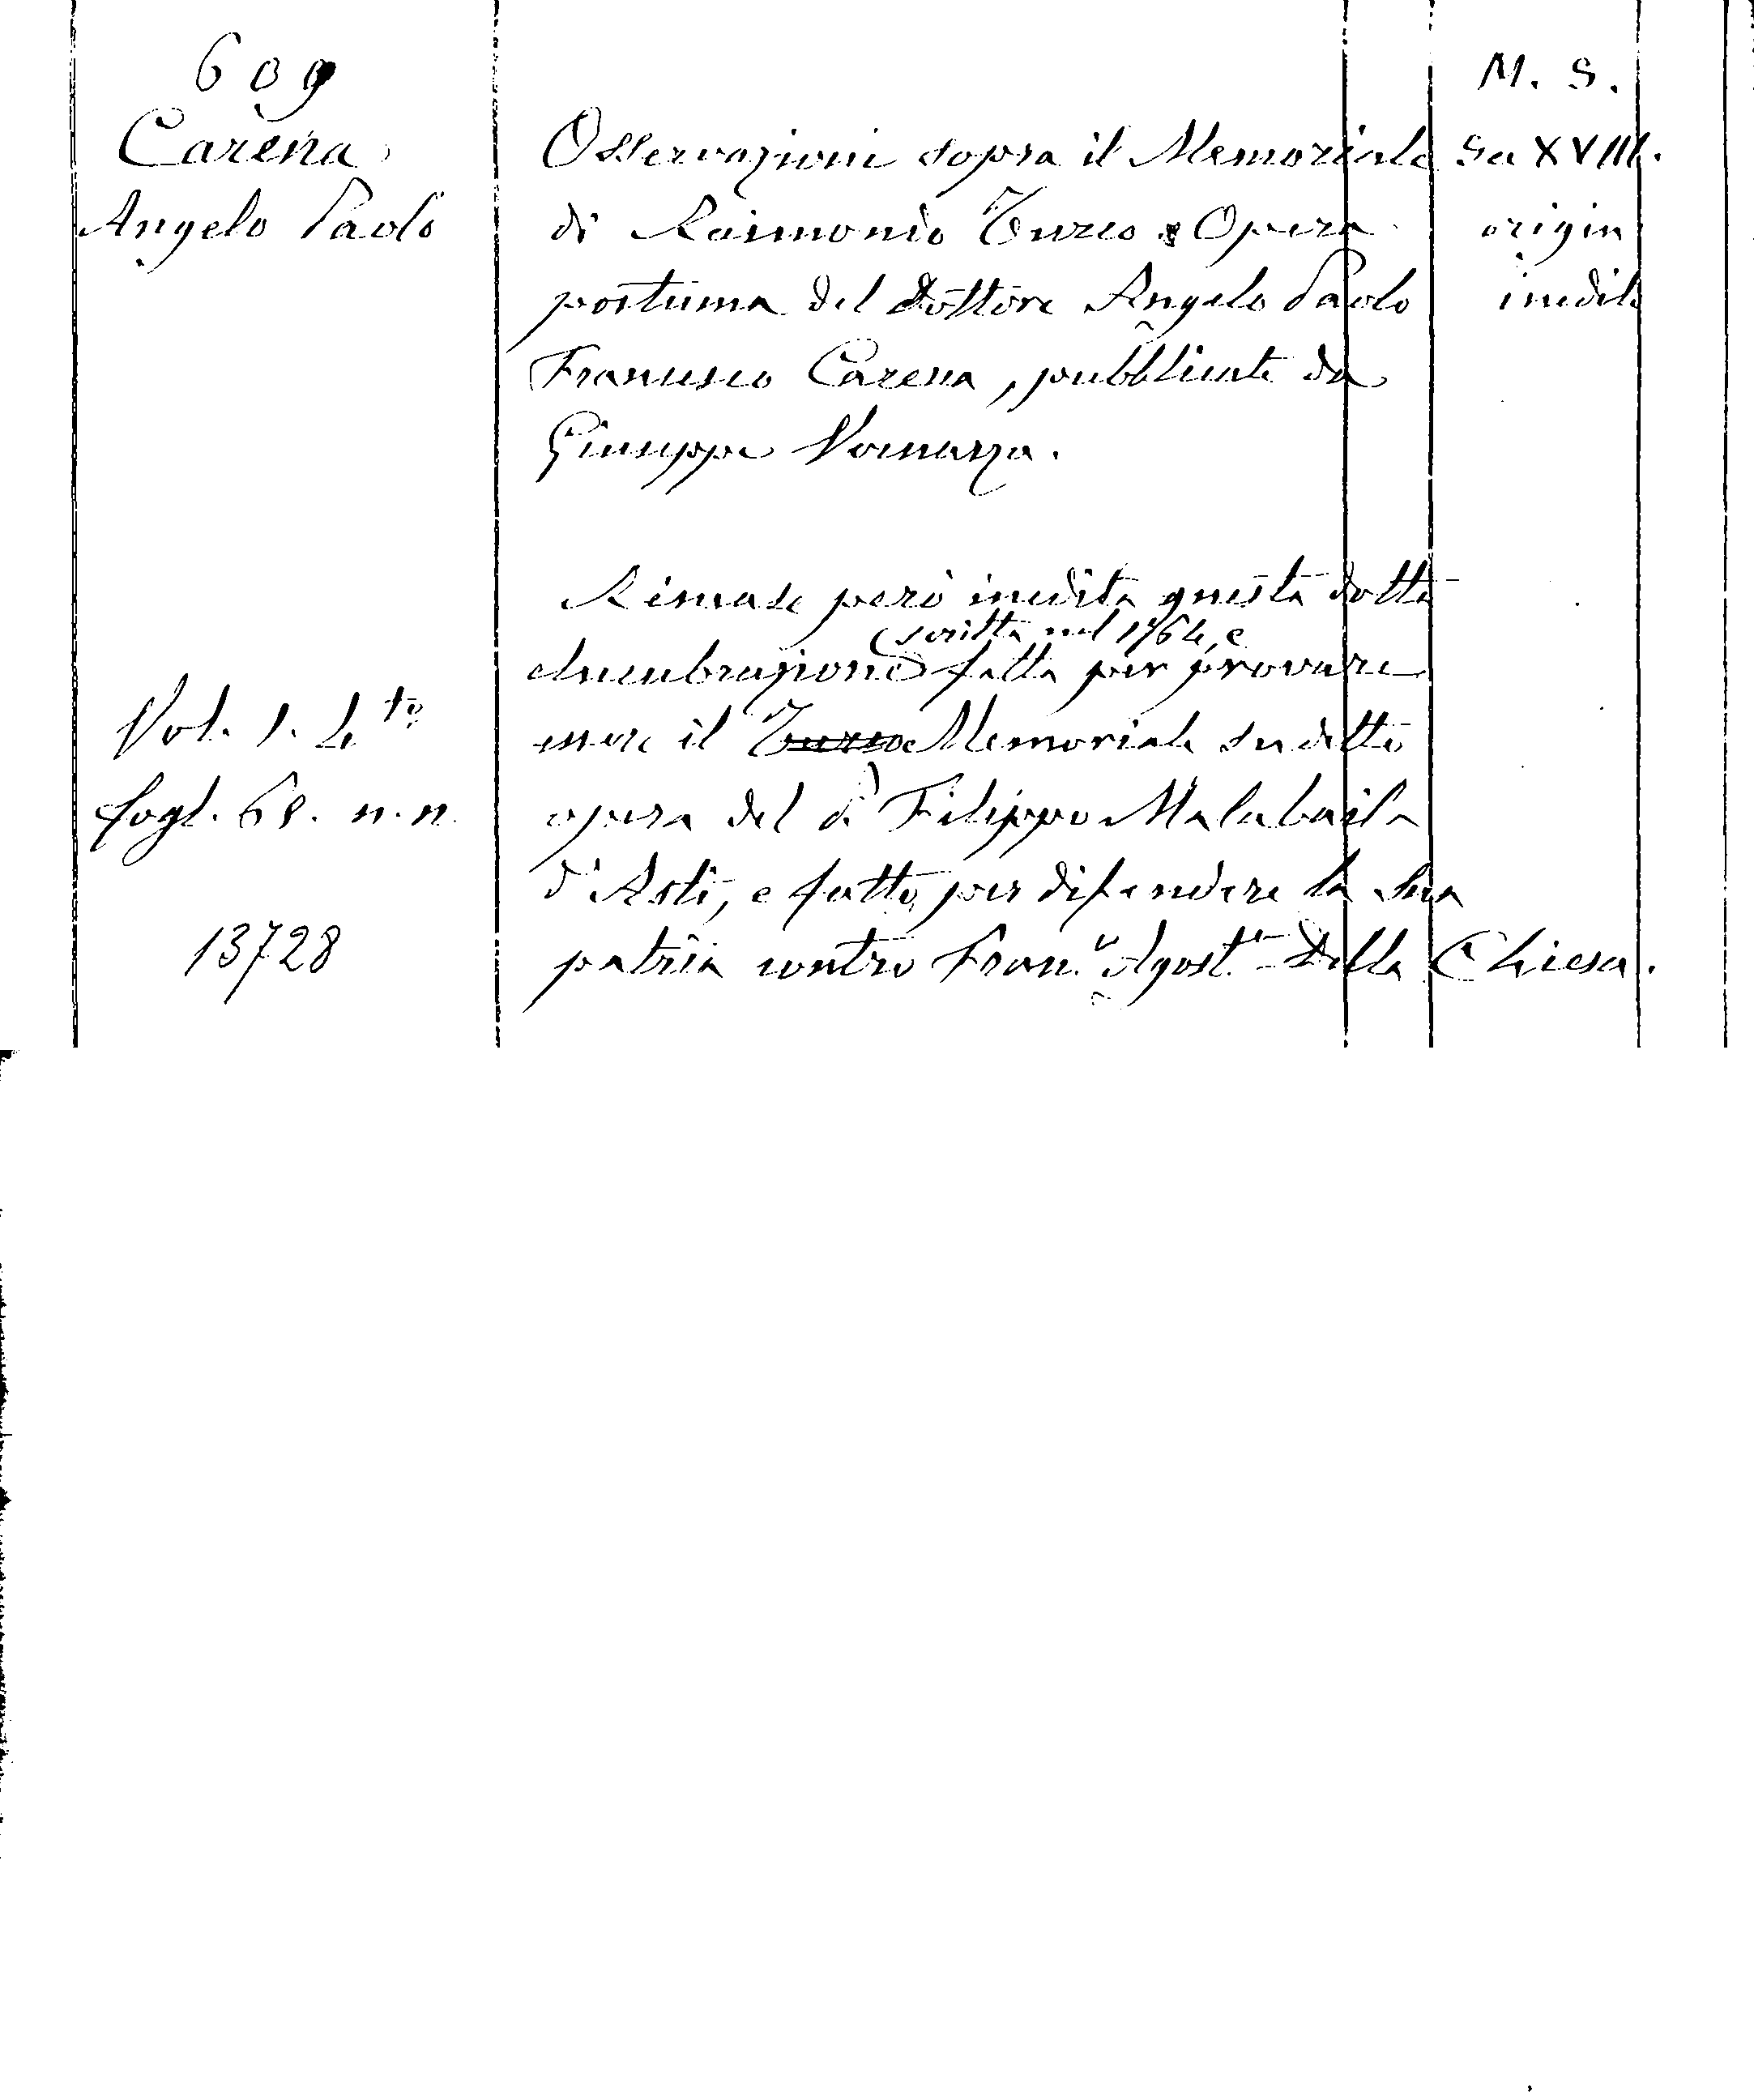 609
M. S.
Carena
Osservazioni sopra il Memoriale
Sec XVIII.
Angelo Paolo
di Raimondo Turco Opera
origin
postuma del Dottore Angelo Paolo
inedito
Francesco Carena, pubblicate da
Giuseppe Vernazza.
Rimase però inedita questa dotta
(scritta nel 1764, e
elucubrazione fatta per provare
Vol. 1. 4to
essere il Turco Memoriale sudetto
fogl. 68. n. n.
opera del di Filippo Malabaila
d'Asti, e fatto per difendere la sua
13728
patria contro Franc.o Agost.o Della Chiesa.